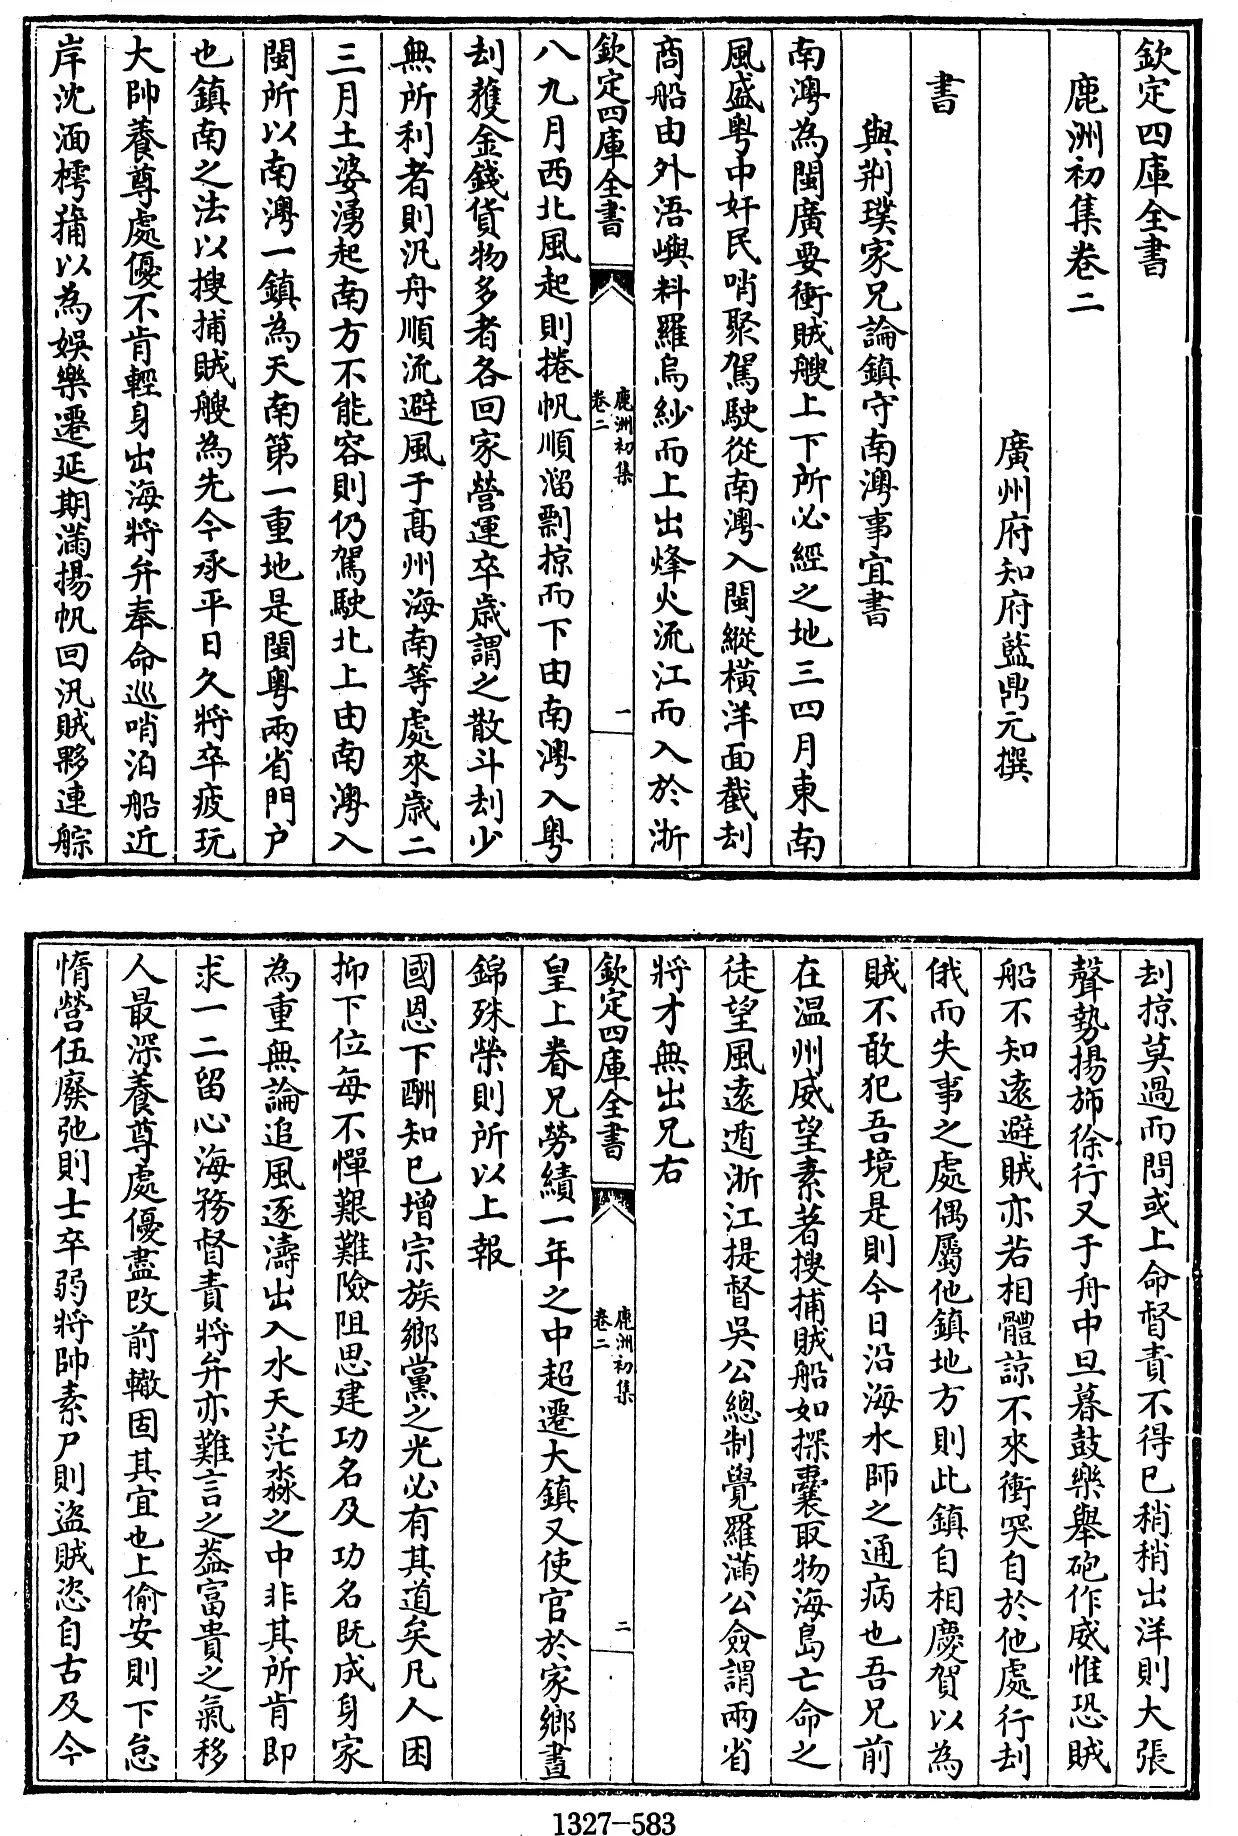 欽定四庫全書
鹿洲初集卷二
廣州府知府藍鼎元撰
書
與荆璞家兄論鎮守南澳事宜書
南澳為閩廣要衝賊艘上下所必經之地三四月東南
風盛粤中奸民哨聚駕駛從南澳入閩縱橫洋面截刦
商船由外浯嶼料羅烏紗而上出烽火流江而入於浙
欽定四庫全書
鹿洲初集
卷二
一
八九月西北風起則捲帆順溜剽掠而下由南澳入粤
刦獲金錢貨物多者各回家營運卒歲謂之散斗刦少
無所利者則汎舟順流避風于髙州海南等處來歲二
三月土婆湧起南方不能容則仍駕駛北上由南澳入
閩所以南澳一鎮為天南第一重地是閩粤兩省門户
也鎮南之法以搜捕賊艘為先今承平日久將卒疲玩
大帥養尊處優不肯輕身出海將弁奉命巡哨泊船近
岸沈湎樗蒱以為娛樂遷延期滿揚帆回汛賊夥連艅
刦掠莫過而問或上命督責不得已稍稍出洋則大張
聲勢揚斾徐行又于舟中旦暮鼓樂舉砲作威惟恐賊
船不知遠避賊亦若相體諒不來衝突自於他處行刦
俄而失事之處偶屬他鎮地方則此鎮自相慶賀以為
賊不敢犯吾境是則今日沿海水師之通病也吾兄前
在温州威望素著搜捕賊船如探囊取物海島亡命之
徒望風遠遁浙江提督吳公總制覺羅滿公僉謂兩省
將才無出兄右
欽定四庫全書
鹿洲初集
卷二
二
皇上眷兄勞績一年之中超遷大鎮又使官於家鄉晝
錦殊榮則所以上報
國恩下酬知已增宗族鄉黨之光必有其道矣凡人困
抑下位每不憚艱難險阻思建功名及功名既成身家
為重無論追風逐濤出入水天茫淼之中非其所肯即
求一二留心海務督責將弁亦難言之葢富貴之氣移
人最深養尊處優盡改前轍固其宜也上偷安則下怠
惰營伍廢弛則士卒弱將帥素尸則盜賊恣自古及今
1327-583